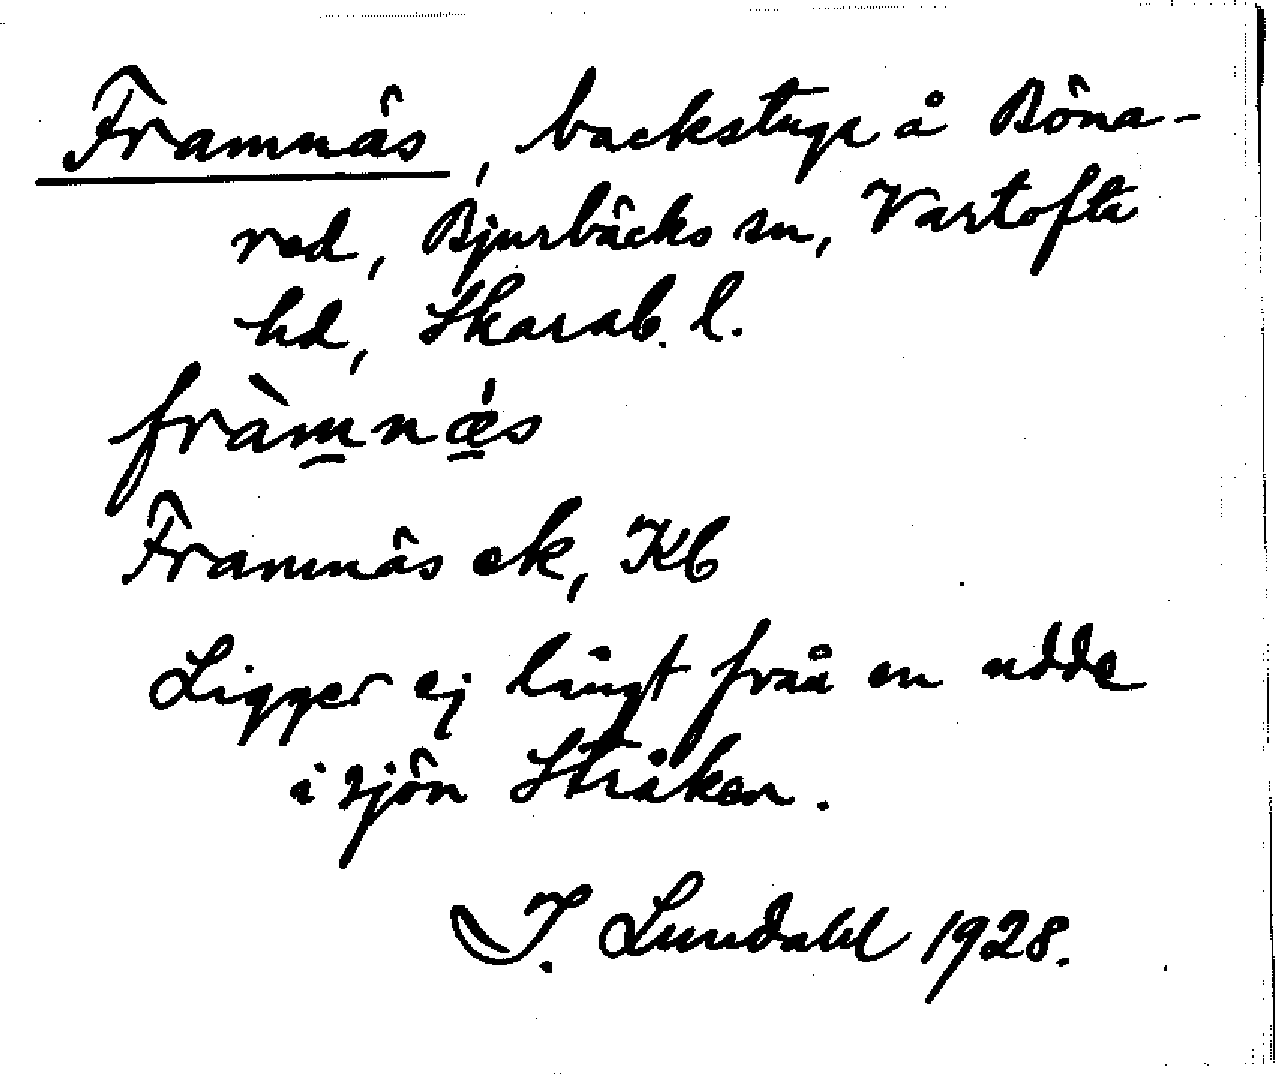 Framnäs, backstuga å Böna-
red, Bjurbäcks sn, Vartofta
hd, Skarab. l.
fràm̲nǽ̲s
Framnäs ek, Kb
Ligger ej långt från en udde
i sjön Stråken.
I. Lundahl 1928.